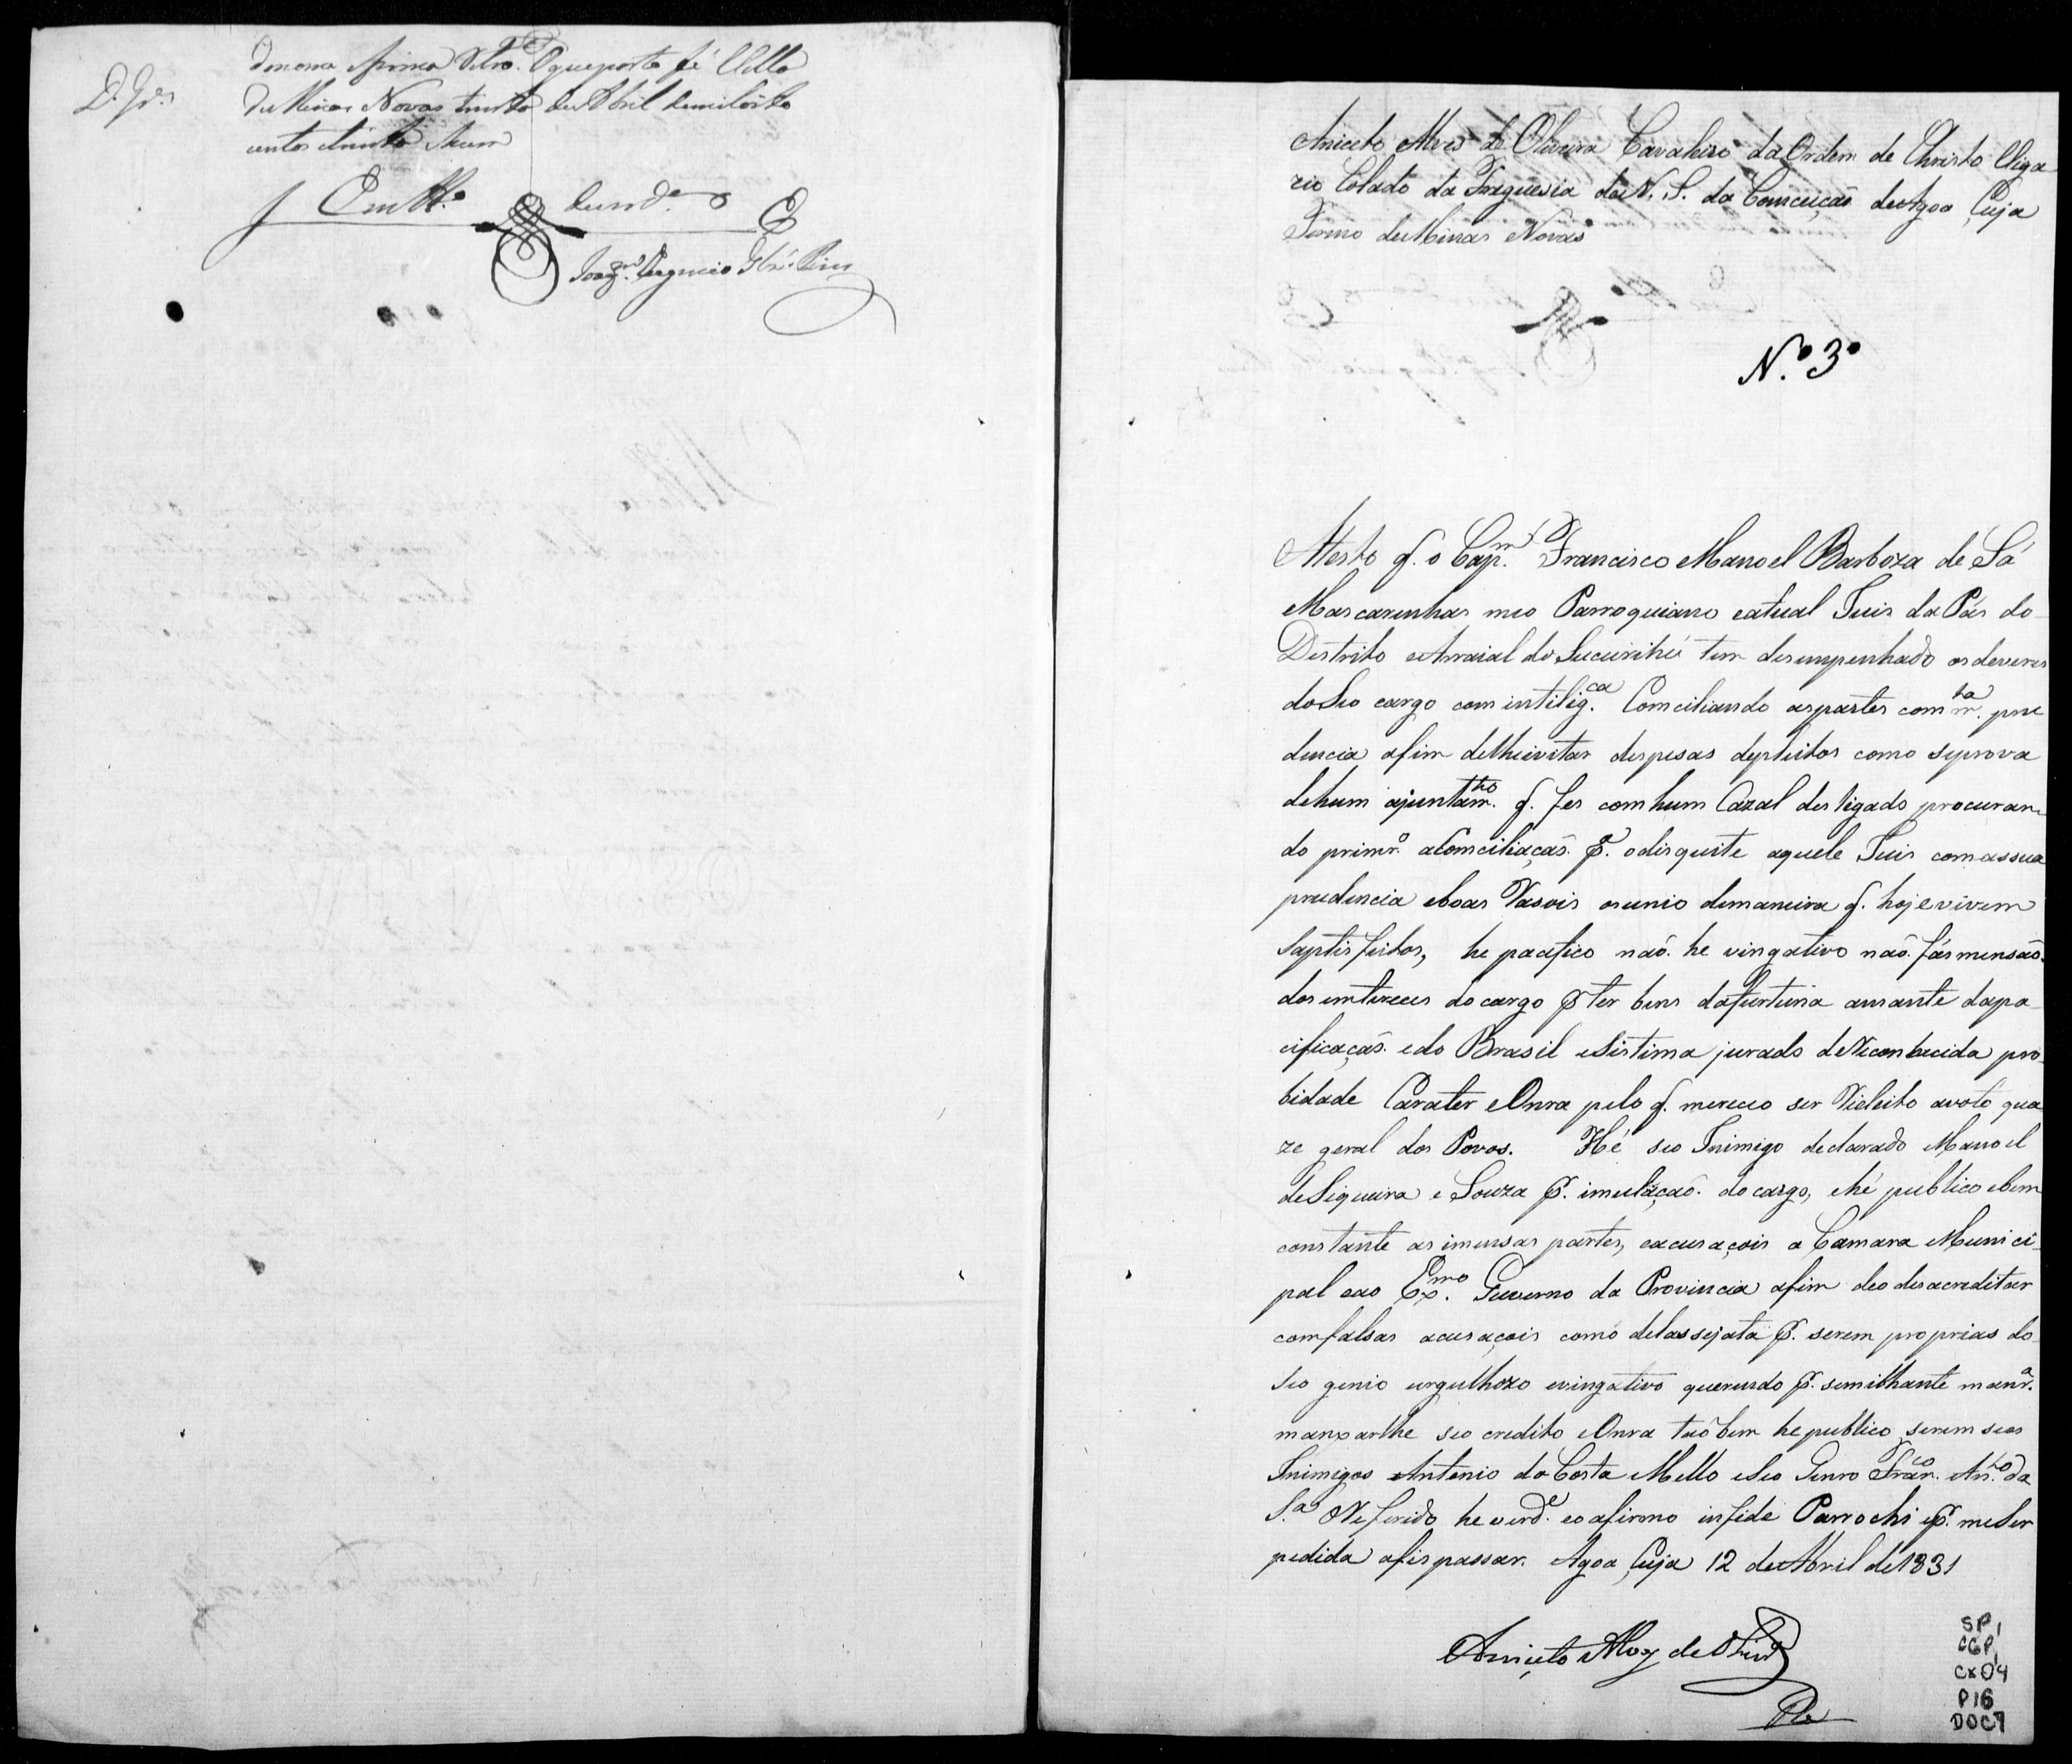 D. Gr.s
Oque porto fé Villa
de Minas Novas trinta de Abril de mil oito
centos etrinta ehum
Em tt.º de verd.e
Joaq.m
Aniceto Alves de Oliveira Cavaleiro da Ordem de Christo Viga
rio Colado da Freguesia de N. S. da Comceiçaõ de Agoa Çuja
Termo de Minas Novas
N.º 3º
Atesto q. o Cap.m Francisco Manoel Barboza de Sá
Mascarenhas meo Parroquiano e atual Juis da Pás do
Destrito e Arraial do Sucurihú tem desempenhado os deveres
do Seo cargo com intilig.ca Comciliando as partes com m.ta pru
dencia afim de lhe ivitar despesas de pleitos como se prova
de hum ajuntam.to q. fes com hum Cazal desligado procuran
do primr.º a Comciliaçaõ. p. o disquite aquele Juis com a ssua
prudencia e boas Rasois os unio de maneira q. hoje vivem
Saptisfeitos, he pacifico naõ. he vingativo naõ. fás mensaõ.
dos imtereces do cargo p ter bens da furtuna amante da pa
cificaçaõ. e do Brasil e Sistima jurado de Reconhecida pro
bidade Carater e Onra pelo q. mereceo ser Rieleito a voto qua
ze geral dos Povos. Hé seo Inimigo declarado Manoel
de Siqueira e Souza p. imulaçaõ. do cargo, e hé publico e bem
constante as imensas partes, e acusaçois a Camara Munici
pal e ao Ex.mo Guverno da Provincia afim de o desacreditar
com falsas acusaçois como delas se jata p. serem proprias do
Seo genio urgulhozo e vingativo querendo p. semilhante manr.a
manxar lhe seo credito e Onra taõ bem he publico serem seos
Inimigos Antonio da Costa Mello e Seo Genro Fran.co An.to da
S.a O Referido he verd.e e o afirmo in fide Parrochi e p. me Ser
pedida a fis passar. Agoa Çuja 12 de Abril de 1831
Aniceto Alves de Olivr.a
SP 1
CGP 1
CX 04
P 16
DOC 7